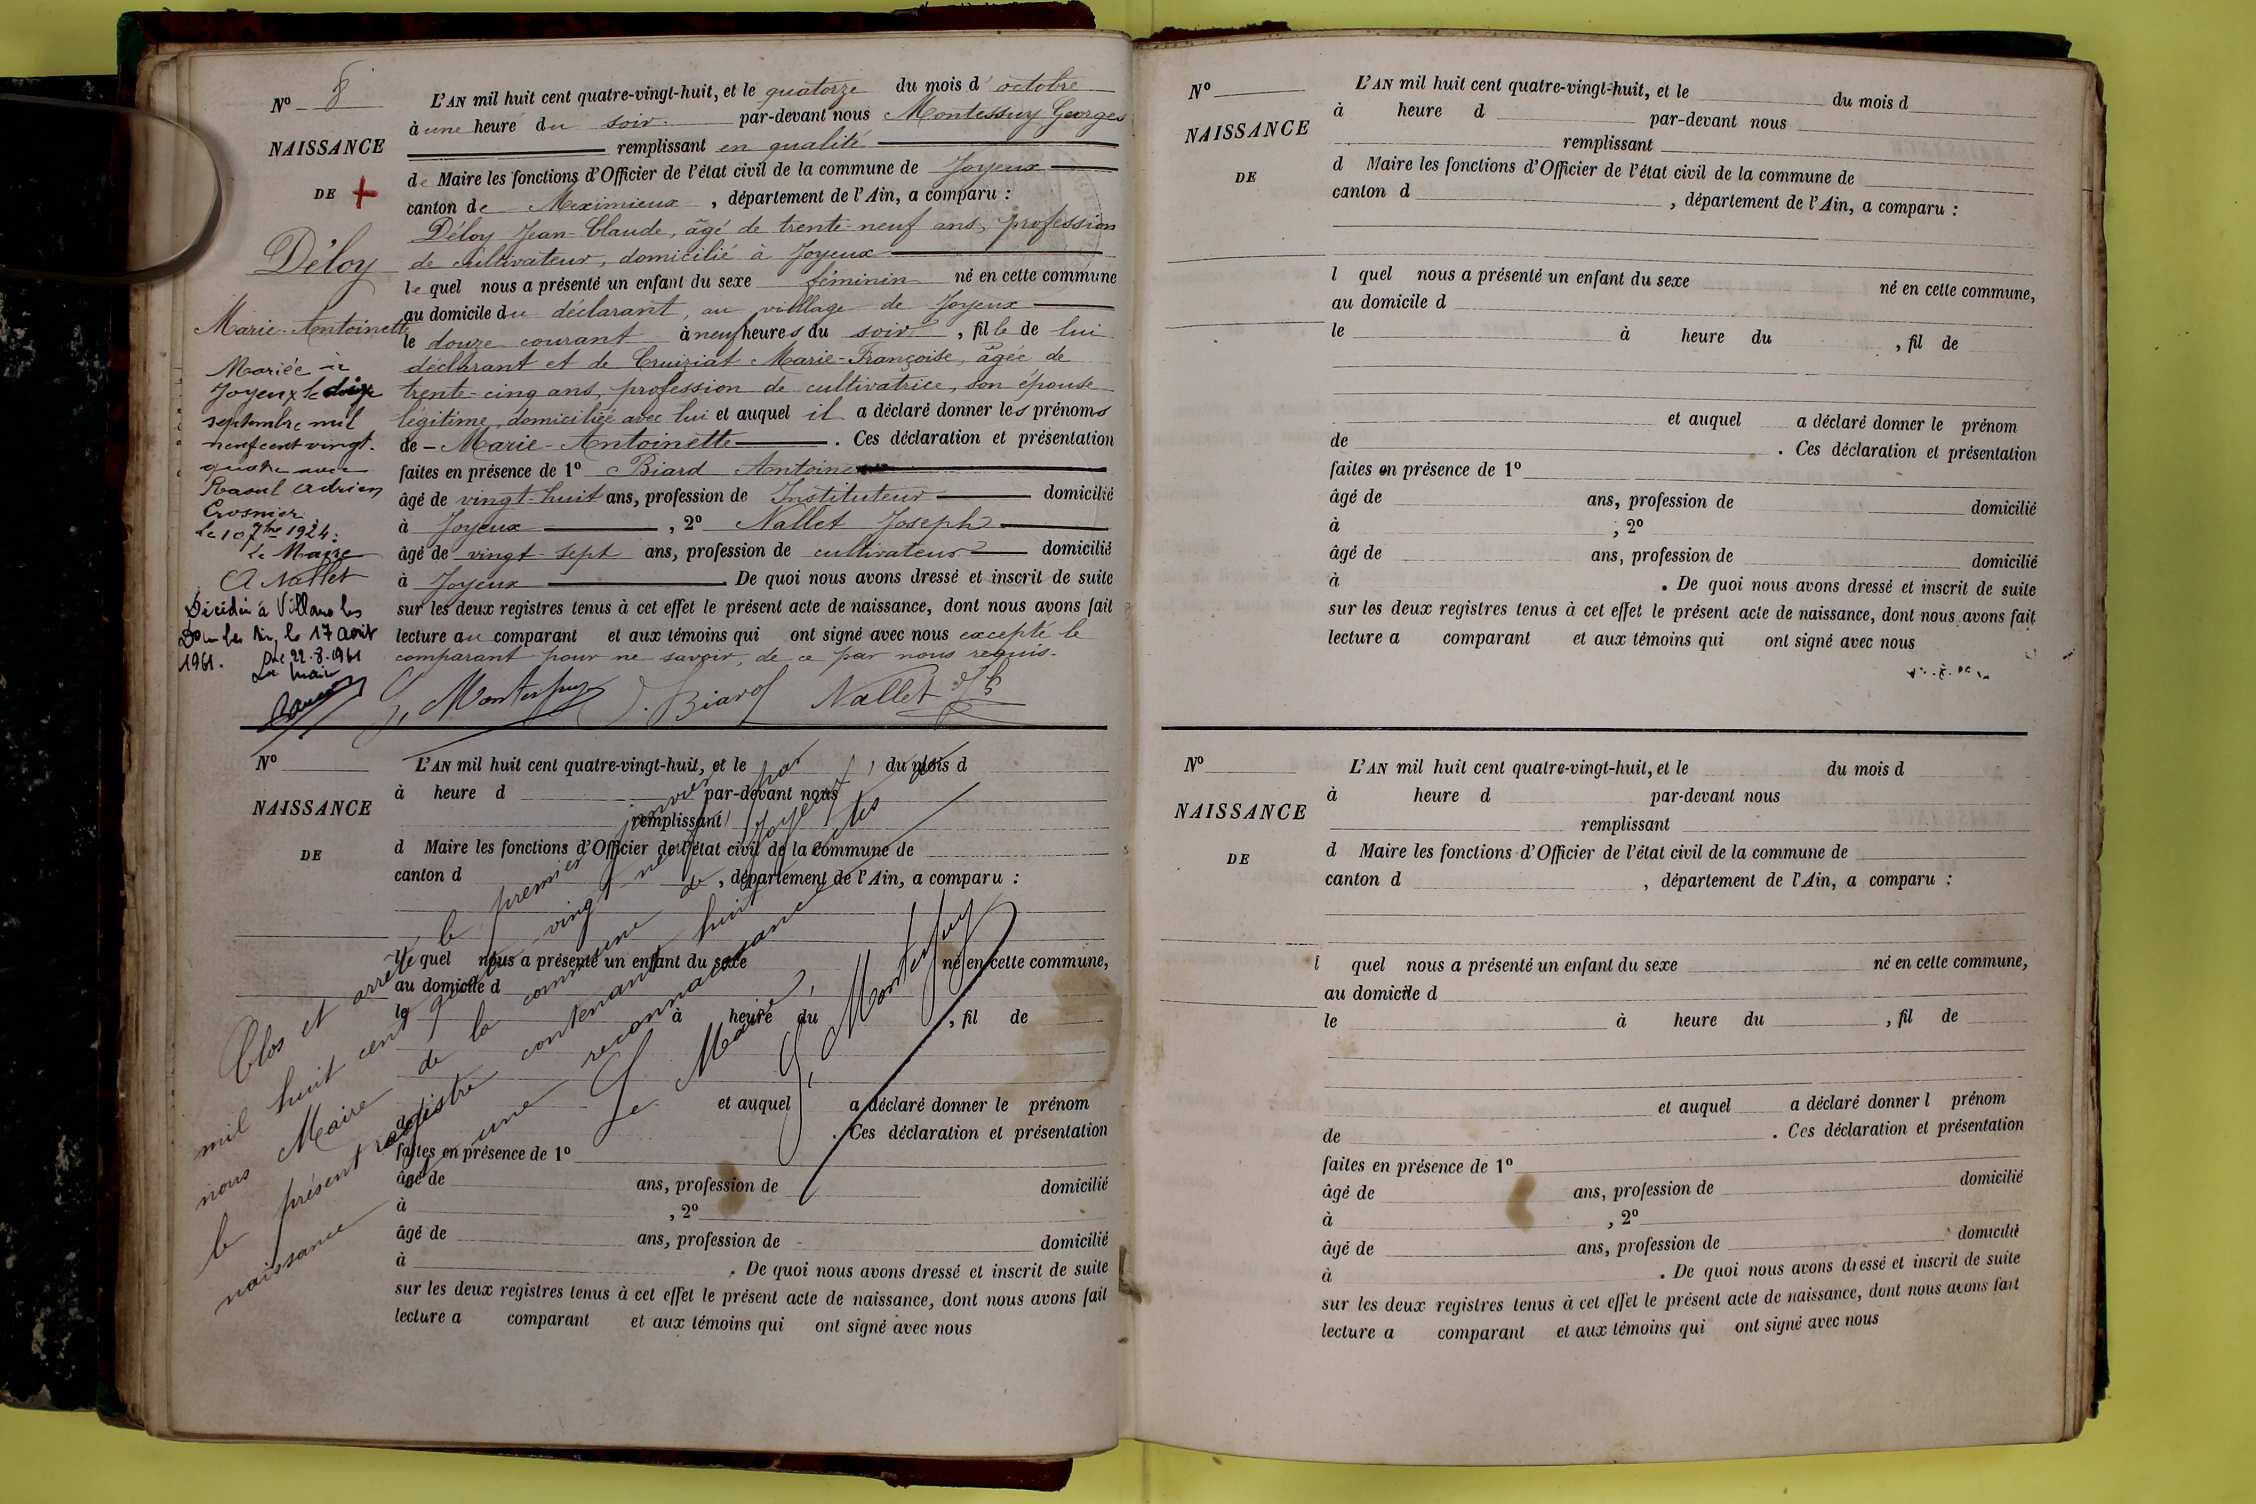 Nº 8
NAISSANCE
DE +
Déloy
Marie-Antoinette
Mariée à
Joyeux le dix
septembre mil
neuf cent vingt-
quatre avec
Raoul Adrien
Crosnier
le 10 7bre 1924:
le Maire
A Nallet
Décédée à Villars les
Dombes Ain, le 17 août
1961.
Le 22.8.1961
Le Maire
L'AN mil huit cent quatre-vingt-huit, et le quatorze du mois d'octobre
à une heure du soir. par-devant nous Montessuy Georges
remplissant en qualité
de Maire les fonctions d'Officier de l'état civil de la commune de Joyeux
canton de Meximieux, département de l'Ain, a comparu :
Déloy Jean-Claude, âgé de trente-neuf ans, profession
de cultivateur, domicilié à Joyeux
lequel nous a présenté un enfant du sexe féminin né en cette commune
au domicile du déclarant, au villlage de Joyeux
le douze courant à neuf heures du soir, fille de lui
déclarant et de Cruiziat Marie-Françoise, âgée de
trente-cinq ans, profession de cultivatrice, son épouse
légitime, domiciliée avec lui et auquel il a déclaré donner les prénoms
de - Marie-Antoinette. Ces déclaration et présentation
faites en présence de 1º Biard Antoine
âgé de vingt-huit ans, profession de Instituteur domicilié
à Joyeux, 2º Nallet Joseph
âgé de vingt-sept ans, profession de cultivateur domicilié
à Joyeux. De quoi nous avons dressé et inscrit de suite
sur les deux registres tenus à cet effet le présent acte de naissance, dont nous avons fait
lecture au comparant et aux témoins qui ont signé avec nous excepté le
comparant pour ne savoir, de ce par nous requis.
G, Montessuy J. Biard Nallet Jh
Nº
NAISSANCE
DE
L'AN mil huit cent quatre-vingt-huit, et le du mois d
à heure d par-devant nous
remplissant
d Maire les fonctions d'Officier de l'état civil de la commune de
canton d , département de l'Ain, a comparu :
lequel nous a présenté un enfant du sexe né en cette commune,
au domicile d
le à heure du , fil de
et auquel a déclaré donner le prénom
de . Ces déclaration et présentation
faites en présence de 1º
âgé de ans, profession de domicilié
à , 2º
âgé de ans, profession de domicilié
à . De quoi nous avons dressé et inscrit de suite
sur les deux registres tenus à cet effet le présent acte de naissance, dont nous avons fait
lecture a comparant et aux témoins qui ont signé avec nous
Clos et arrêté, le premier janvier
mil huit cent quatre vingt neuf, par
nous Maire de la commune de Joyeux,
le présent registre contenant huit actes de
naissance et une reconnaissance
Le Maire,
G, Montessuy
Nº
NAISSANCE
DE
L'AN mil huit cent quatre-vingt-huit, et le du mois d
à heure d par-devant nous
remplissant
d Maire les fonctions d'Officier de l'état civil de la commune de
canton d , département de l'Ain, a comparu :
l quel nous a présenté un enfant du sexe né en cette commune,
au domicile d
le à heure du , fil de
et auquel a déclaré donner le prénom
de . Ces déclaration et présentation
faites en présence de 1º
âgé de ans, profession de domicilié
à , 2º
âgé de ans, profession de domicilié
à . De quoi nous avons dressé et inscrit de suite
sur les deux registres tenus à cet effet le présent acte de naissance, dont nous avons fait
lecture a comparant et aux témoins qui ont signé avec nous
Nº
NAISSANCE
DE
L'AN mil huit cent quatre-vingt-huit, et le du mois d
à heure d par-devant nous
remplissant
d Maire les fonctions d'Officier de l'état civil de la commune de
canton d , département de l'Ain, a comparu :
l quel nous a présenté un enfant du sexe né en cette commune,
au domicile d
le à heure du , fil de
et auquel a déclaré donner l prénom
de . Ces déclaration et présentation
faites en présence de 1º
âgé de ans, profession de domicilié
à , 2º
âgé de ans, profession de domicilié
à . De quoi nous avons dressé et inscrit de suite
sur les deux registres tenus à cet effet le présent acte de naissance, dont nous avons fait
lecture a comparant et aux témoins qui ont signé avec nous